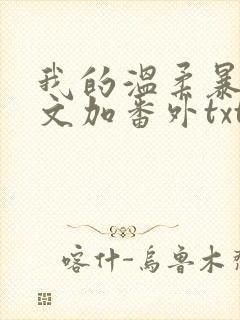 我的温柔暴
文加番外txt
喀什-乌鲁木齐